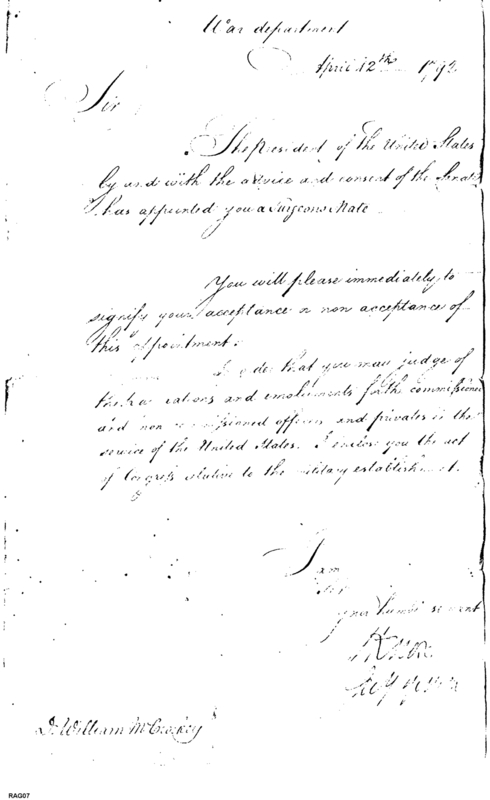 War department
April 12th 1792
Sir
The President of the United States
by and with the advice and consent of the Senate
has appointed you a Surgeons Mate
You will please immediately to
signify your acceptance or non acceptance of
this appointment.
In order that you may judge of
the rations and emoluments for the commissioned
and non commissioned officers and privates in the
service of the United States. I enclose you the act
of Congress relative to the military establishment.
I am
Sir
your humb servant
H Knox
Secy of War
Dr. William McCroskey
RAG07